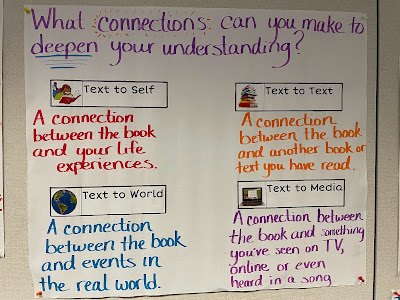 What connections can you make to
deepen your understanding?
Text to Self
A connection
between the book
and your life
experiences.
Text to Text
A connection
between the book
and another book or
text you have read.
Text to World
A connection
between the book
and events in
the real world.
Text to Media
A connection between
the book and something
you've seen on TV,
online or even
heard in a song.